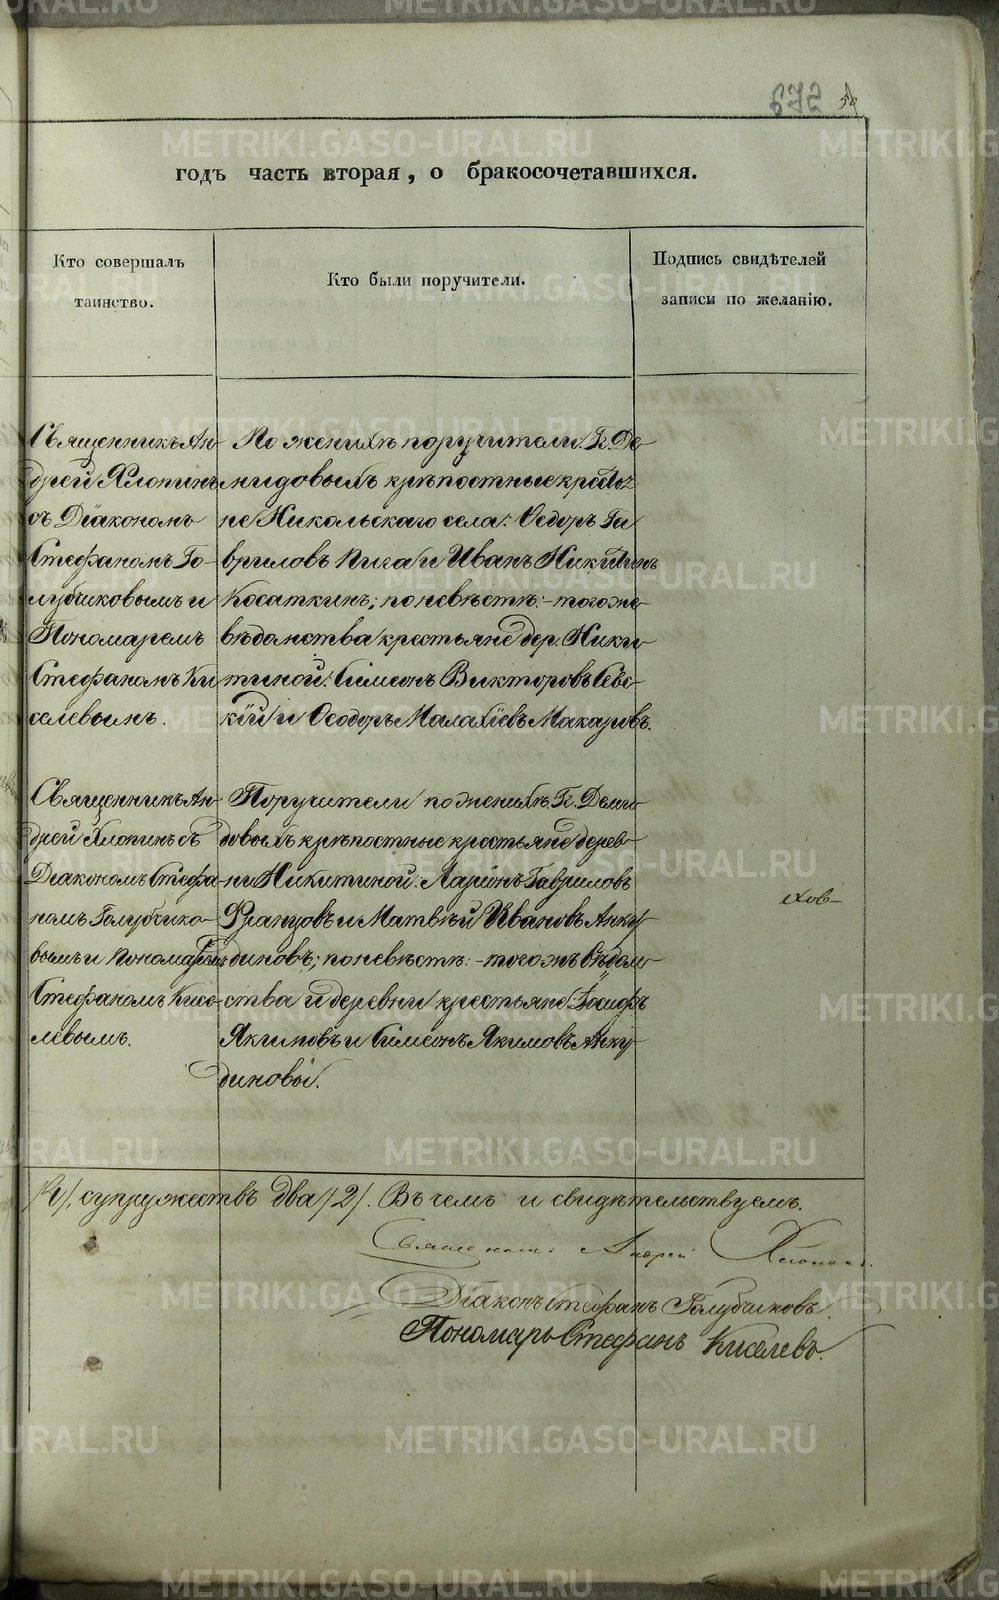 672
годъ часть вторая, о бракосочетавшихся.
Кто совершалъ
таинство.
Кто были поручители.
Подпись свидѣтелей
записи по желанію.
Священникъ Ан-
дрей Хлопинъ
съ Діакономъ
Стефаномъ Го-
лубчиковымъ и
Пономаремъ
Стефаномъ Ки
селевымъ.
По женихѣ поручители Г. Де
мидовыхъ крѣпостные крестья
не Никольскаго села: Ѳедоръ Га
вриловъ Пигаи и Иванъ Никитинъ
Косаткинъ; по невѣстѣ:- того же
вѣдомства крестьяне дер. Ники
тиной: Симеонъ Викторовъ Сѣвс-
кій и Ѳеодоръ Малахіевъ Макаровъ.
Священникъ Ан-
дрей Хлопинъ съ
Діакономъ Стефа-
номъ Голубчико-
вымъ и Пономаремъ
Стефаномъ Кисе-
левымъ.
Поручители по женихѣ Г. Деми
довыхъ крѣпостные крестьяне дерев-
ни Никитиной: Ларіонъ Гавриловъ
Французовъ и Матвѣй Ивановъ Анку
диновъ; по невѣстѣ:- того жъ вѣдом
ства и деревни крестьяне Іосифъ
Якимовъ и Симеонъ Якимовъ Анку
диновы.
ков-
супружествъ два /2/. Въ чемъ и свидѣтельствуемъ.
Священникъ Андрей Хлопинъ.
Діаконъ Стефанъ Голубчиковъ.
Пономарь Стефанъ Киселевъ.
METRIKI.GASO-URAL.RU